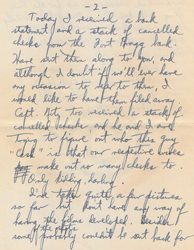 - 2 -
Today I received a bank
statement and a stack of cancelled
checks from the Fort Bragg bank.
Have sent them along to you, and
although I doubt if we'll ever have
any occasion to refer to them, I
would like to have them filed away.
Capt. too received a stack of
cancelled checks, and he and I are
trying to figure out who this guy
"Cash" is that our respective wives
make out so many checks to.
Only kidding, darling.
I've taken quite a few pictures
so far but don't have any way of
having the films developed.
some probably couldn't be sent back for